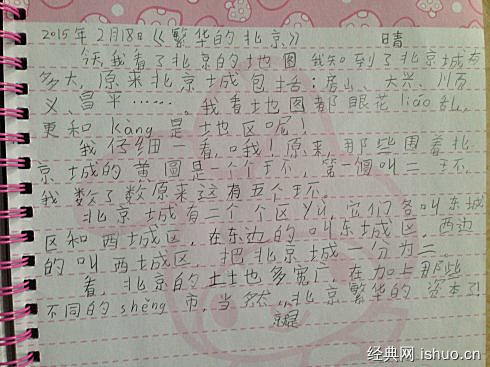 2015年2月18日《繁华的北京》 晴
今天我看了北京的地图我知到了北京城有
多大,原来北京城包括:房山、大兴、川页
义、昌平……。我看地图都眼花liáo乱,
更和kàng是地区呢!
我仔细一看,哦!原来,那些围着北
京城的黄圈是一个个环,第一個叫二环,
我数了数原来这有五个环。
北京城有二个个区yù,它们各叫东城
区和西城区,在东边的叫东城区,西边
的叫西城区 把北京城一分为二。
看,北京的土地多宽广在加上那些
不同的shěng市,当然,北京繁华的资本了!
就是
经典网 ishuo.cn